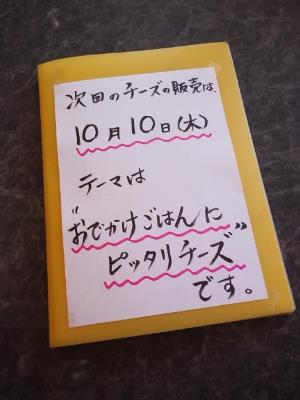 次回のチーズの販売は、
10月10日(木)
テーマは
“おでかけごはんに
ピッタリチーズ”
です。